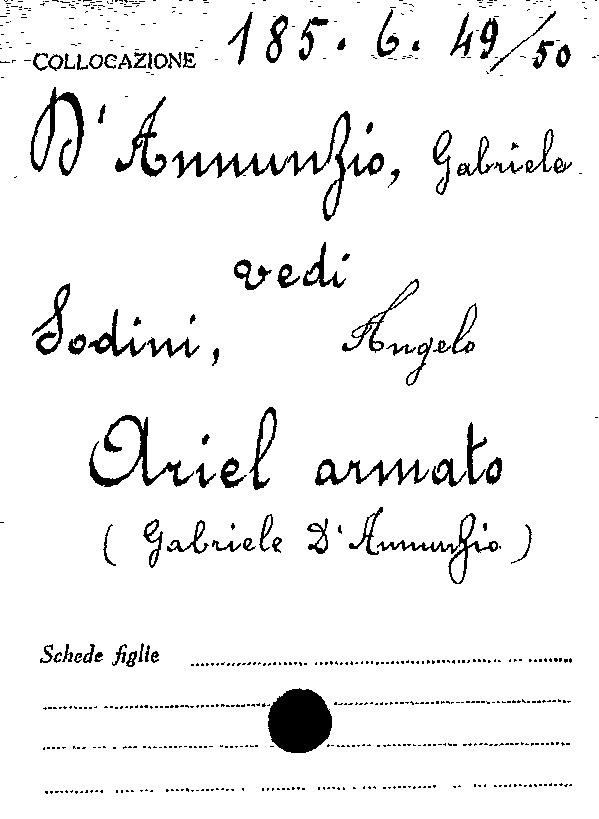 COLLOCAZIONE 185. 6. 49/50
D'Annunzio, Gabriele
vedi
Sodini, Angelo
Ariel armato
( Gabriele D'Annunzio )
Schede figlie